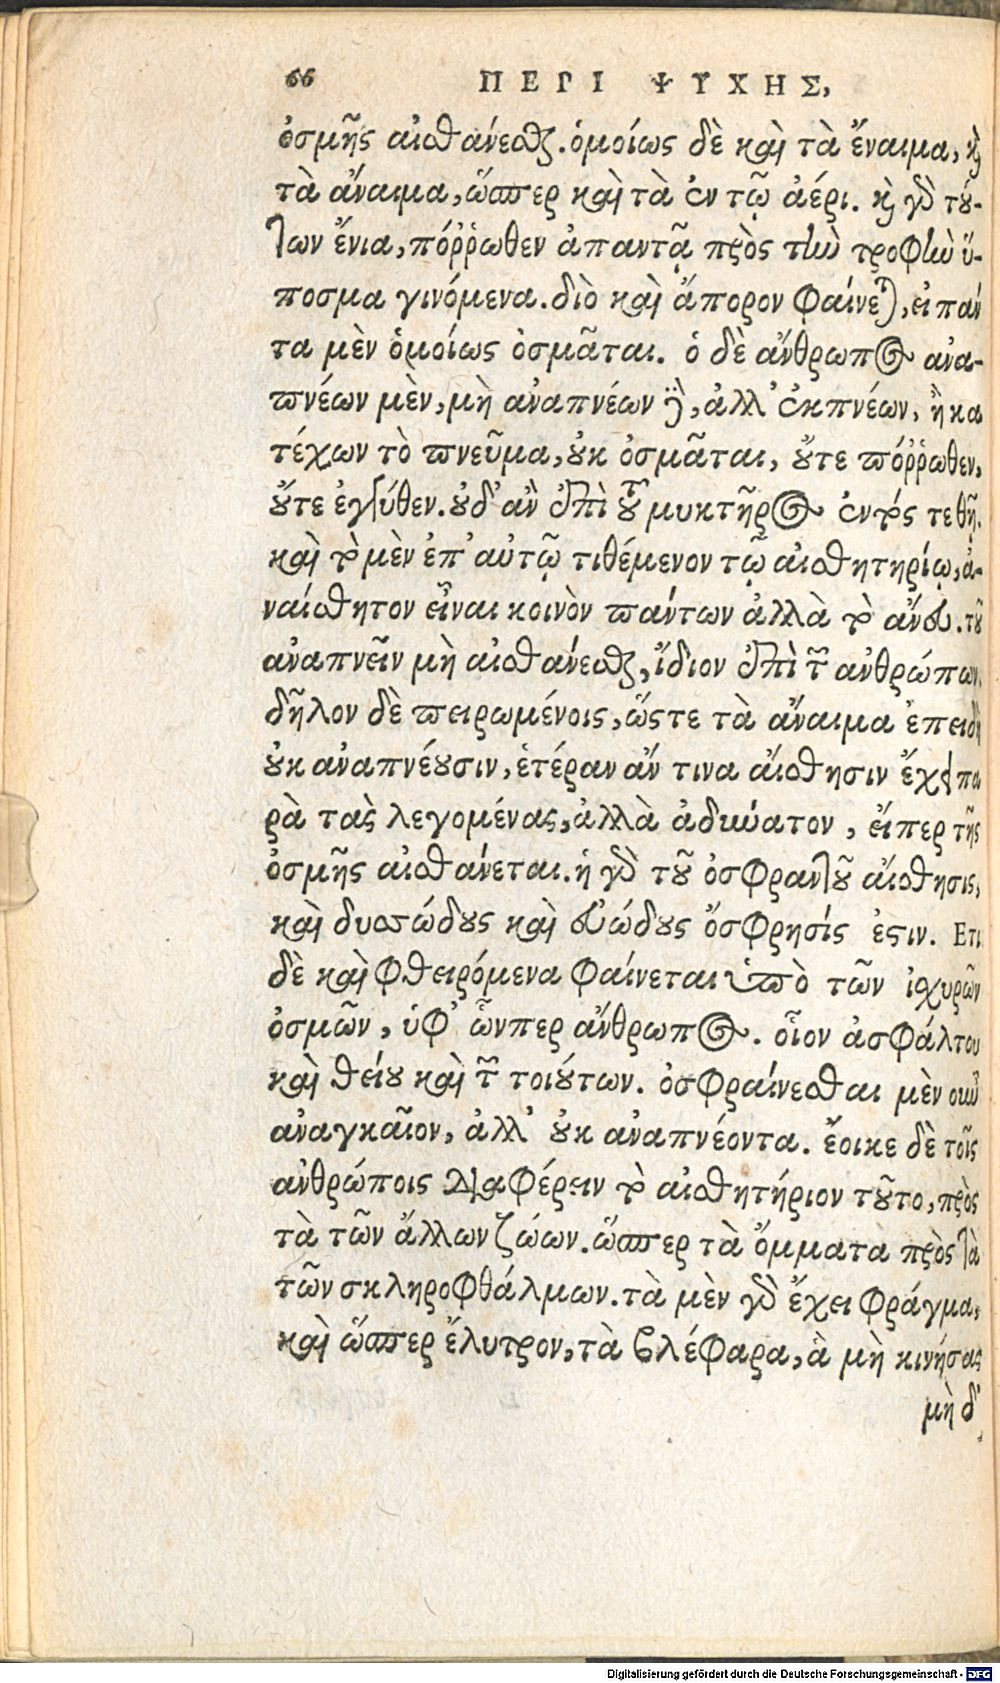 66 ΠΕΡΙ ΨΥΧΗΣ,
ὀσμῆς αἰσθάνεσθαι. ὁμοίως δὲ καὶ τὰ ἔναιμα, καὶ
τὰ ἄναιμα, ὥσπερ καὶ τὰ ἐν τῷ ἀέρι. καὶ γὰρ τού-
των ἔνια, πόῤῥωθεν ἀπαντᾷ πρὸς τὴν τροφὴν ὕ-
ποσμα γινόμενα. διὸ καὶ ἄπορον φαίνεται, εἰ πάν
τα μὲν ὁμοίως ὀσμᾶται. ὁ δὲ ἄνθρωπος ἀνα-
πνέων μὲν, μὴ ἀναπνέων δὲ, ἀλλ' ἐκπνέων, ἢ κα
τέχων τὸ πνεῦμα, οὐκ ὀσμᾶται, οὔτε πόῤῥωθεν,
οὔτε ἐγγύθεν. οὐδ' ἂν ἐπὶ τοῦ μυκτῆρος ἐντὸς τεθῇ.
καὶ τὸ μὲν ἐπ' αὐτῷ τιθέμενον τῷ αἰσθητηρίῳ, ἀ-
ναίσθητον εἶναι κοινὸν πάντων ἀλλὰ τὸ ἄνευ. τοῦ
ἀναπνεῖν μὴ αἰσθάνεσθαι, ἴδιον ἐπὶ τῶν ἀνθρώπων.
δῆλον δὲ πειρωμένοις, ὥστε τὰ ἄναιμα ἐπειδὴ
οὐκ ἀναπνέουσιν, ἑτέραν ἄν τινα αἴσθησιν ἔχοι πα
ρὰ τὰς λεγομένας, ἀλλὰ ἀδύνατον, εἴπερ τῆς
ὀσμῆς αἰσθάνεται. ἡ γὰρ τοῦ ὀσφραντοῦ αἴσθησις,
καὶ δυσώδους καὶ εὐώδους ὄσφρησίς ἐστιν. Ετι
δὲ καὶ φθειρόμενα φαίνεται ὑπὸ τῶν ἰσχυρῶν
ὀσμῶν, ὑφ' ὧνπερ ἄνθρωπος. οἷον ἀσφάλτου
καὶ θείου καὶ τῶν τοιούτων. ὀσφραίνεσθαι μὲν οὖν
ἀναγκαῖον, ἀλλ' οὐκ ἀναπνέοντα. ἔοικε δὲ τοῖς
ἀνθρώποις διαφέρειν τὸ αἰσθητήριον τοῦτο, πρὸς
τὰ τῶν ἄλλων ζώων. ὥσπερ τὰ ὄμματα πρὸς τὰ
τῶν σκληροφθάλμων. τὰ μὲν γὰρ ἔχει φράγμα,
καὶ ὥσπερ ἔλυτρον, τὰ βλέφαρα, ἃ μὴ κινήσας
μὴ δ'
Digitalisierung gefördert durch die Deutsche Forschungsgemeinschaft - DFG